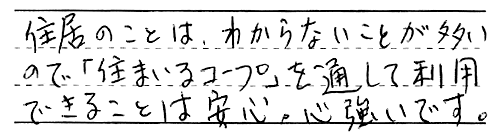 住居のことは、わからないことが多い
ので「住まいるコープ」を通して利用
できることは安心。心強いです。